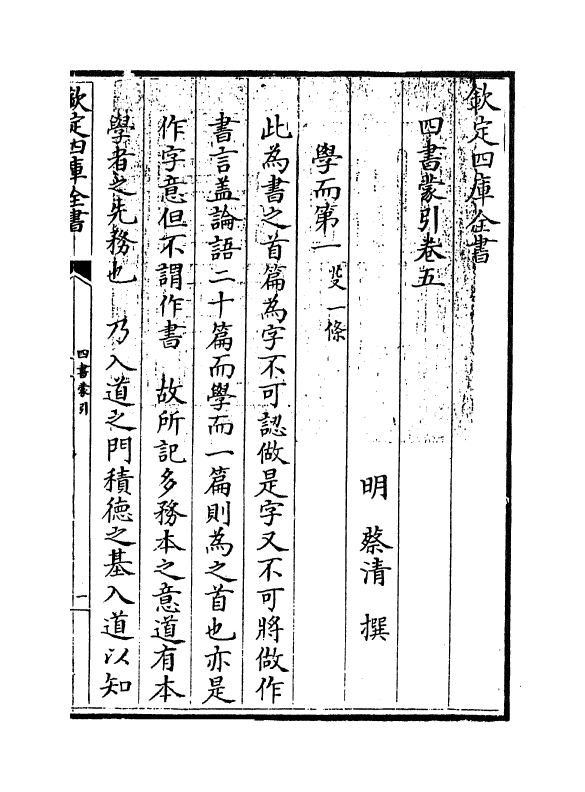 欽定四庫全書
四書蒙引卷五
明 蔡清 撰
學而第一 一條
此為書之首篇為字不可認做是字又不可將做作
書言盖論語二十篇而學而一篇則為之首也亦是
作字意但不謂作書 故所記多務本之意道有本
學者之先務也 乃入道之門積德之基入道以知
欽定四庫全書
四書蒙引
一